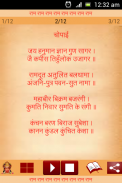 12:32 am
1/12
2/12
3/12
चोपाई
जय हनुमान ज्ञान गुण सागर ।
जै कपीस तिहुँलोक उजागर ॥
रामदूत अतुलित बलधामा ।
अंजनि-पुत्र पवन-सुत नामा ॥
महाबीर बिक्रम बजरंगी ।
कुमति निवार सुमति के संगी ॥
कंचन बरण बिराज सुबेशा ।
कानन कुंडल कुंचित केशा ॥